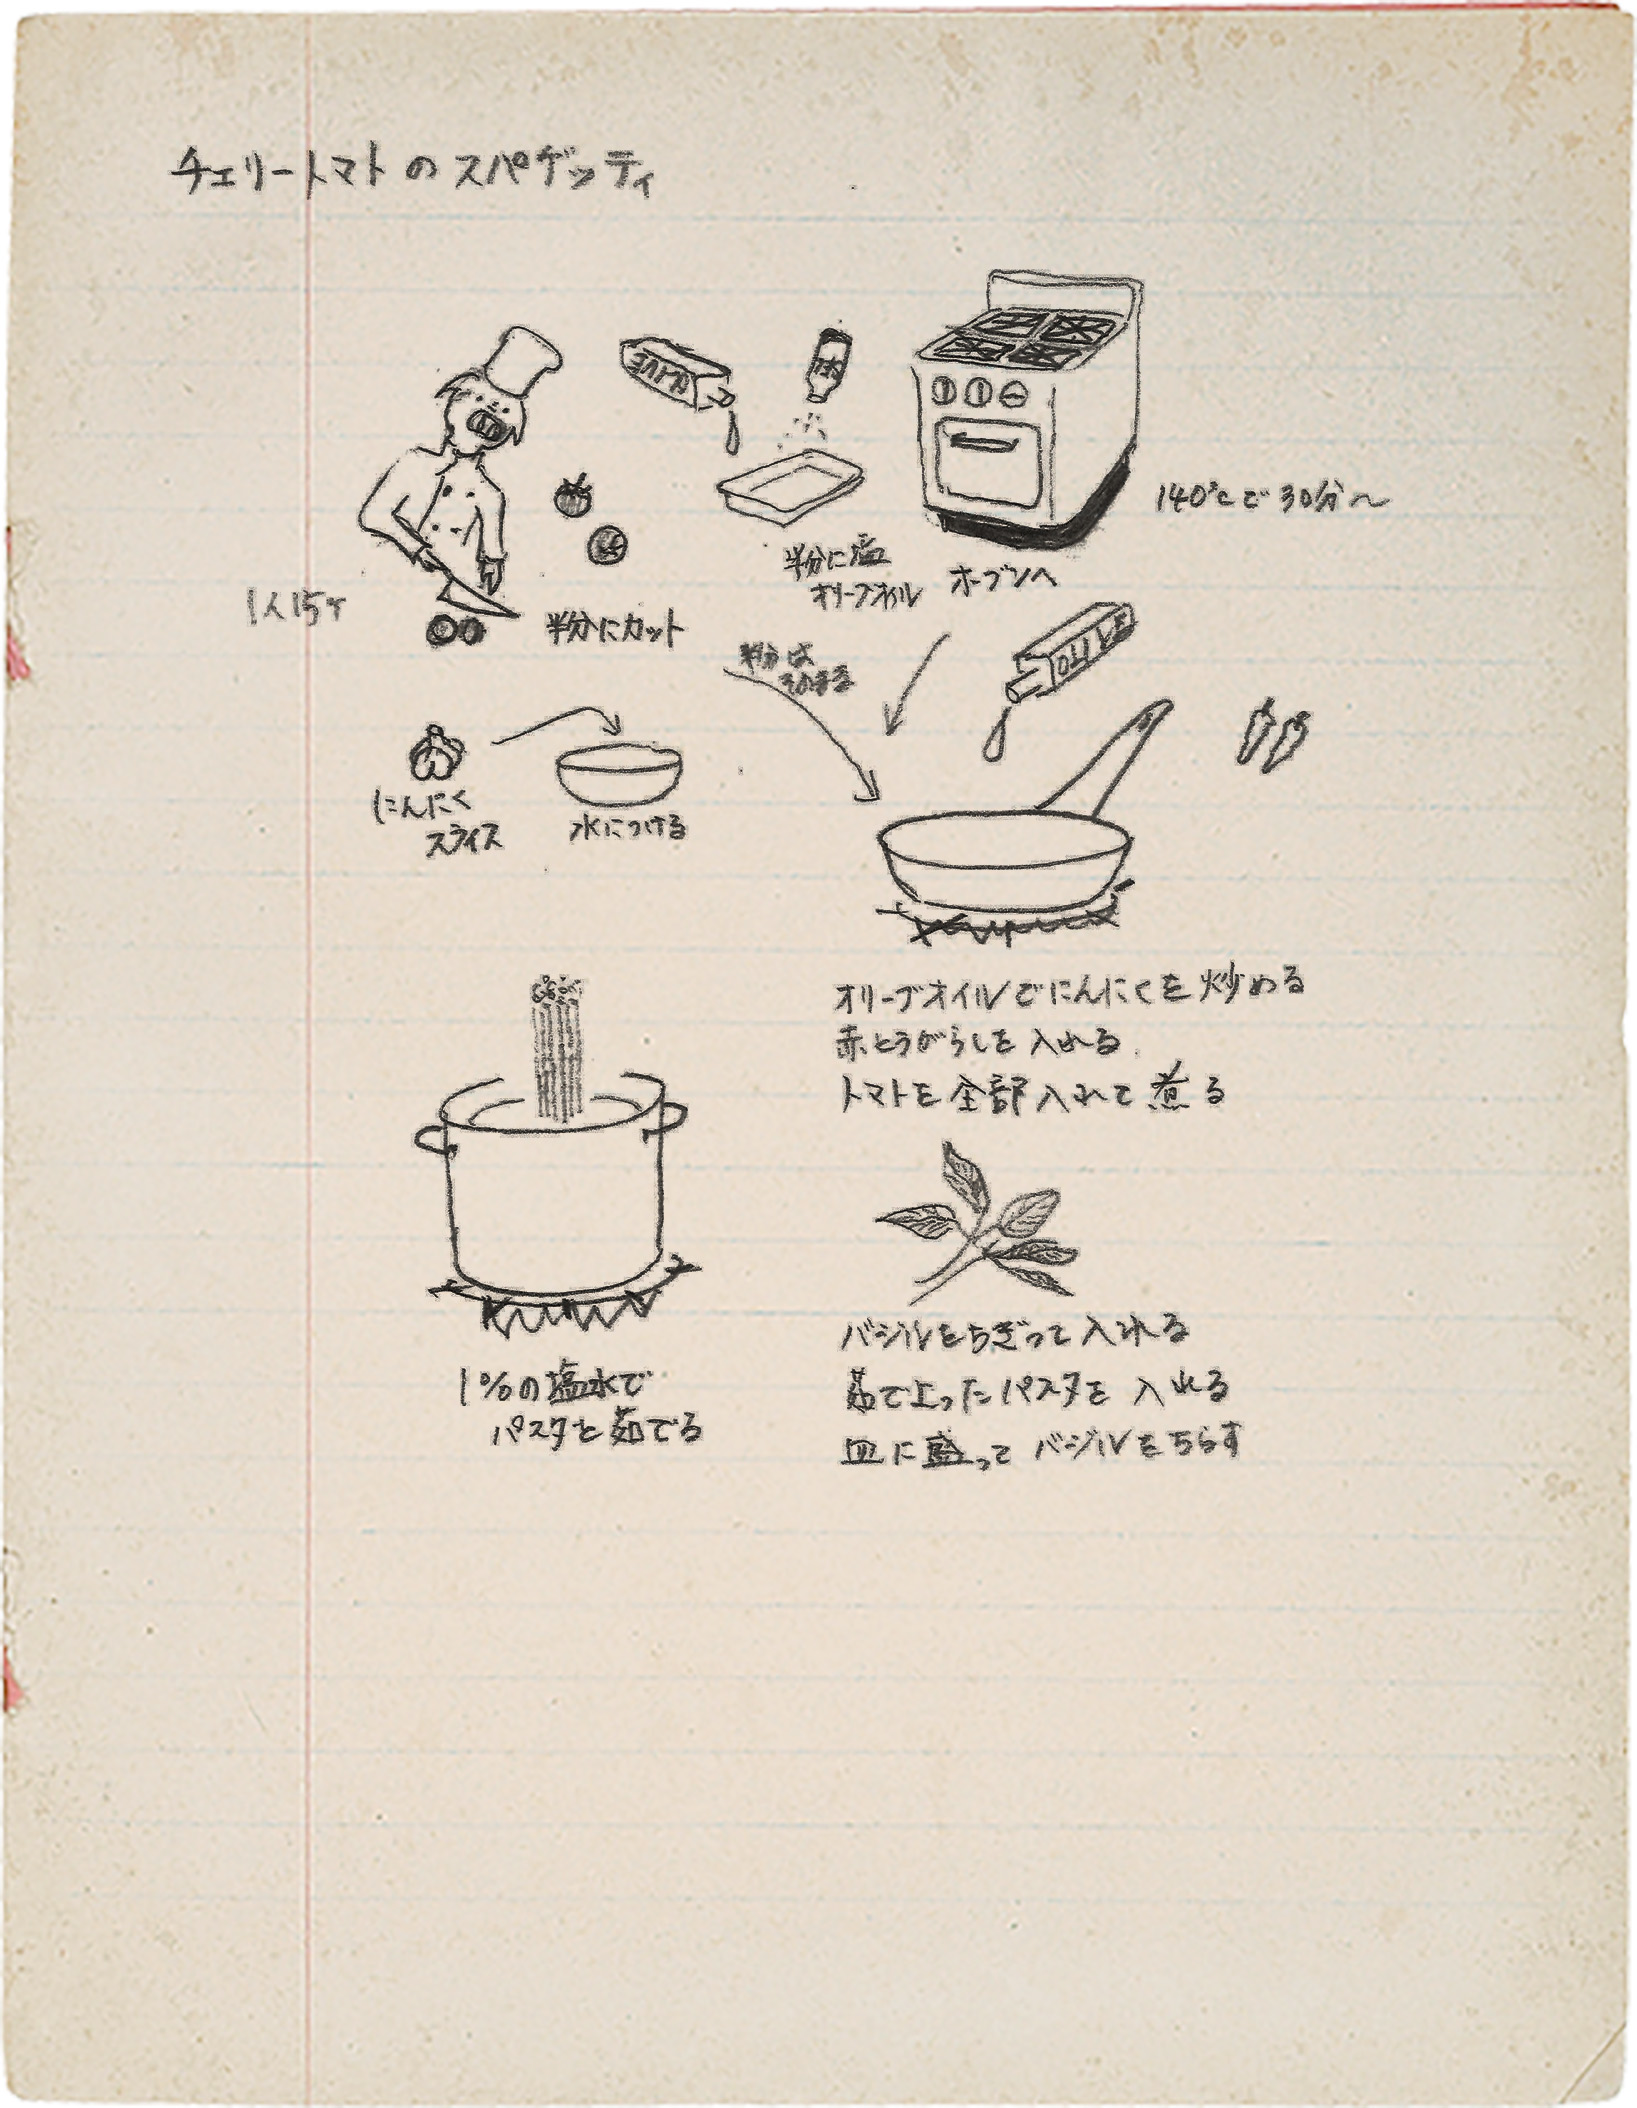 チェリートマトのスパゲッティ
OLIVE
140℃で30分〜
半分に塩
オリーブオイル
オーブンへ
1人15ケ
半分にカット
半分は
そのまま
OLIVE
にんにく
スライス
水につける
オリーブオイルでにんにくを炒める
赤とうがらしを入れる
トマトを全部入れて煮る
1%の塩水で
パスタを茹でる
バジルをちぎって入れる
茹で上ったパスタを入れる
皿に盛ってバジルをちらす